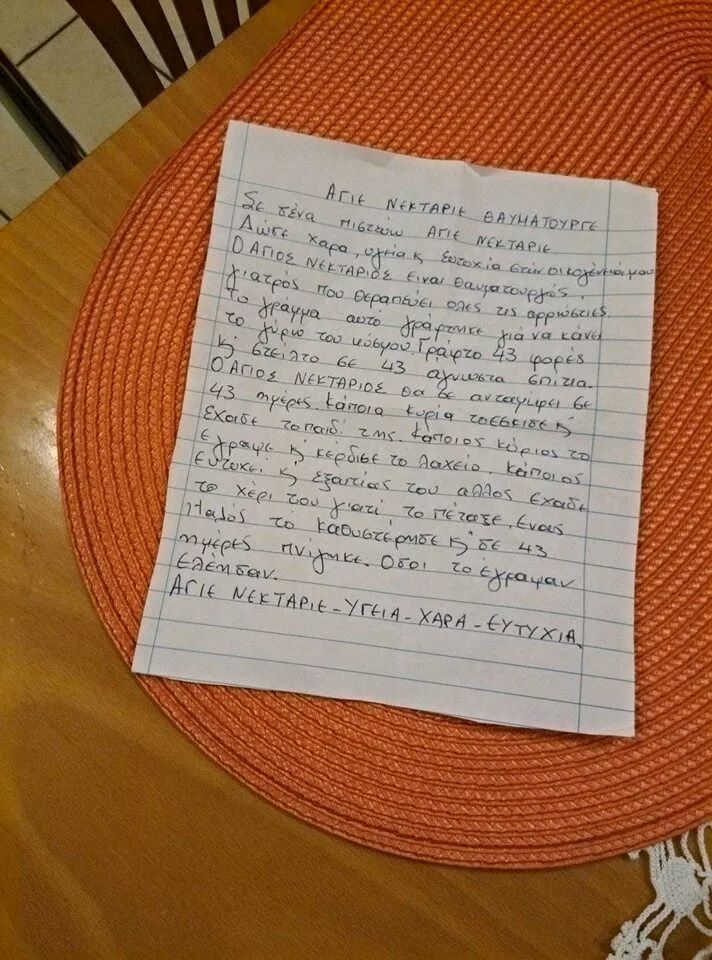 ΑΓΙΕ ΝΕΚΤΑΡΙΕ ΘΑΥΜΑΤΟΥΡΓΕ
Σε σένα πιστεύω ΑΓΙΕ ΝΕΚΤΑΡΙΕ
Δώσε χαρά, υγεία κ ευτυχία στην οικογένειά μου
Ο ΑΓΙΟΣ ΝΕΚΤΑΡΙΟΣ είναι θαυματουργός,
γιατρός που θεραπεύει όλες τις αρρώστιες
Το γράμμα αυτό γράφτηκε για να κάνει
το γύρω του κόσμου. Γράφτο 43 φορές
κ στειλτο σε 43 άγνωστα σπίτια.
Ο ΑΓΙΟΣ ΝΕΚΤΑΡΙΟΣ θα σε ανταμείψει σε
43 ημέρες. Κάποια κυρία το έσκισε κ
έχασε το παιδί της. Κάποιος κύριος το
έγραψε κ κέρδισε το λαχείο. Κάποιος
ευτυχεί κ εξαιτίας του άλλος έχασε
το χέρι του γιατί το πέταξε, ένας
άλλος το καθυστέρησε κ σε 43
ημέρες πνίγηκε. Όσοι το έγραψαν
ελέησαν.
ΑΓΙΕ ΝΕΚΤΑΡΙΕ - ΥΓΕΙΑ - ΧΑΡΑ - ΕΥΤΥΧΙΑ.